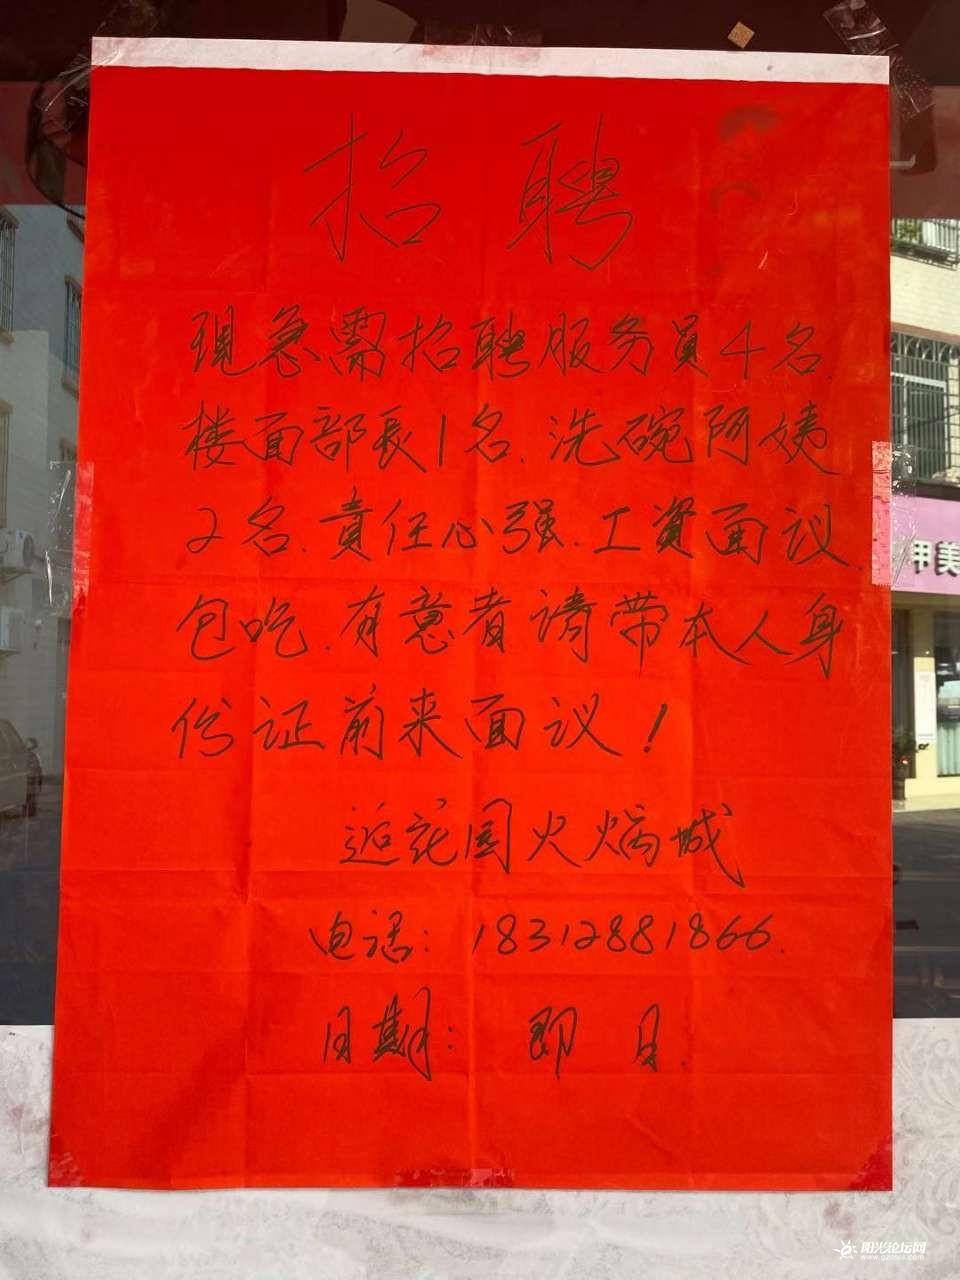 招聘
现急需招聘服务员4名.
楼面部长1名.洗碗阿姨
2名.責任心强.工資面议.
包吃.有意者请带本人身
份证前来面议！
追花园火焗城
电话：18312881866.
日期：即日.
美甲
阳光论坛网